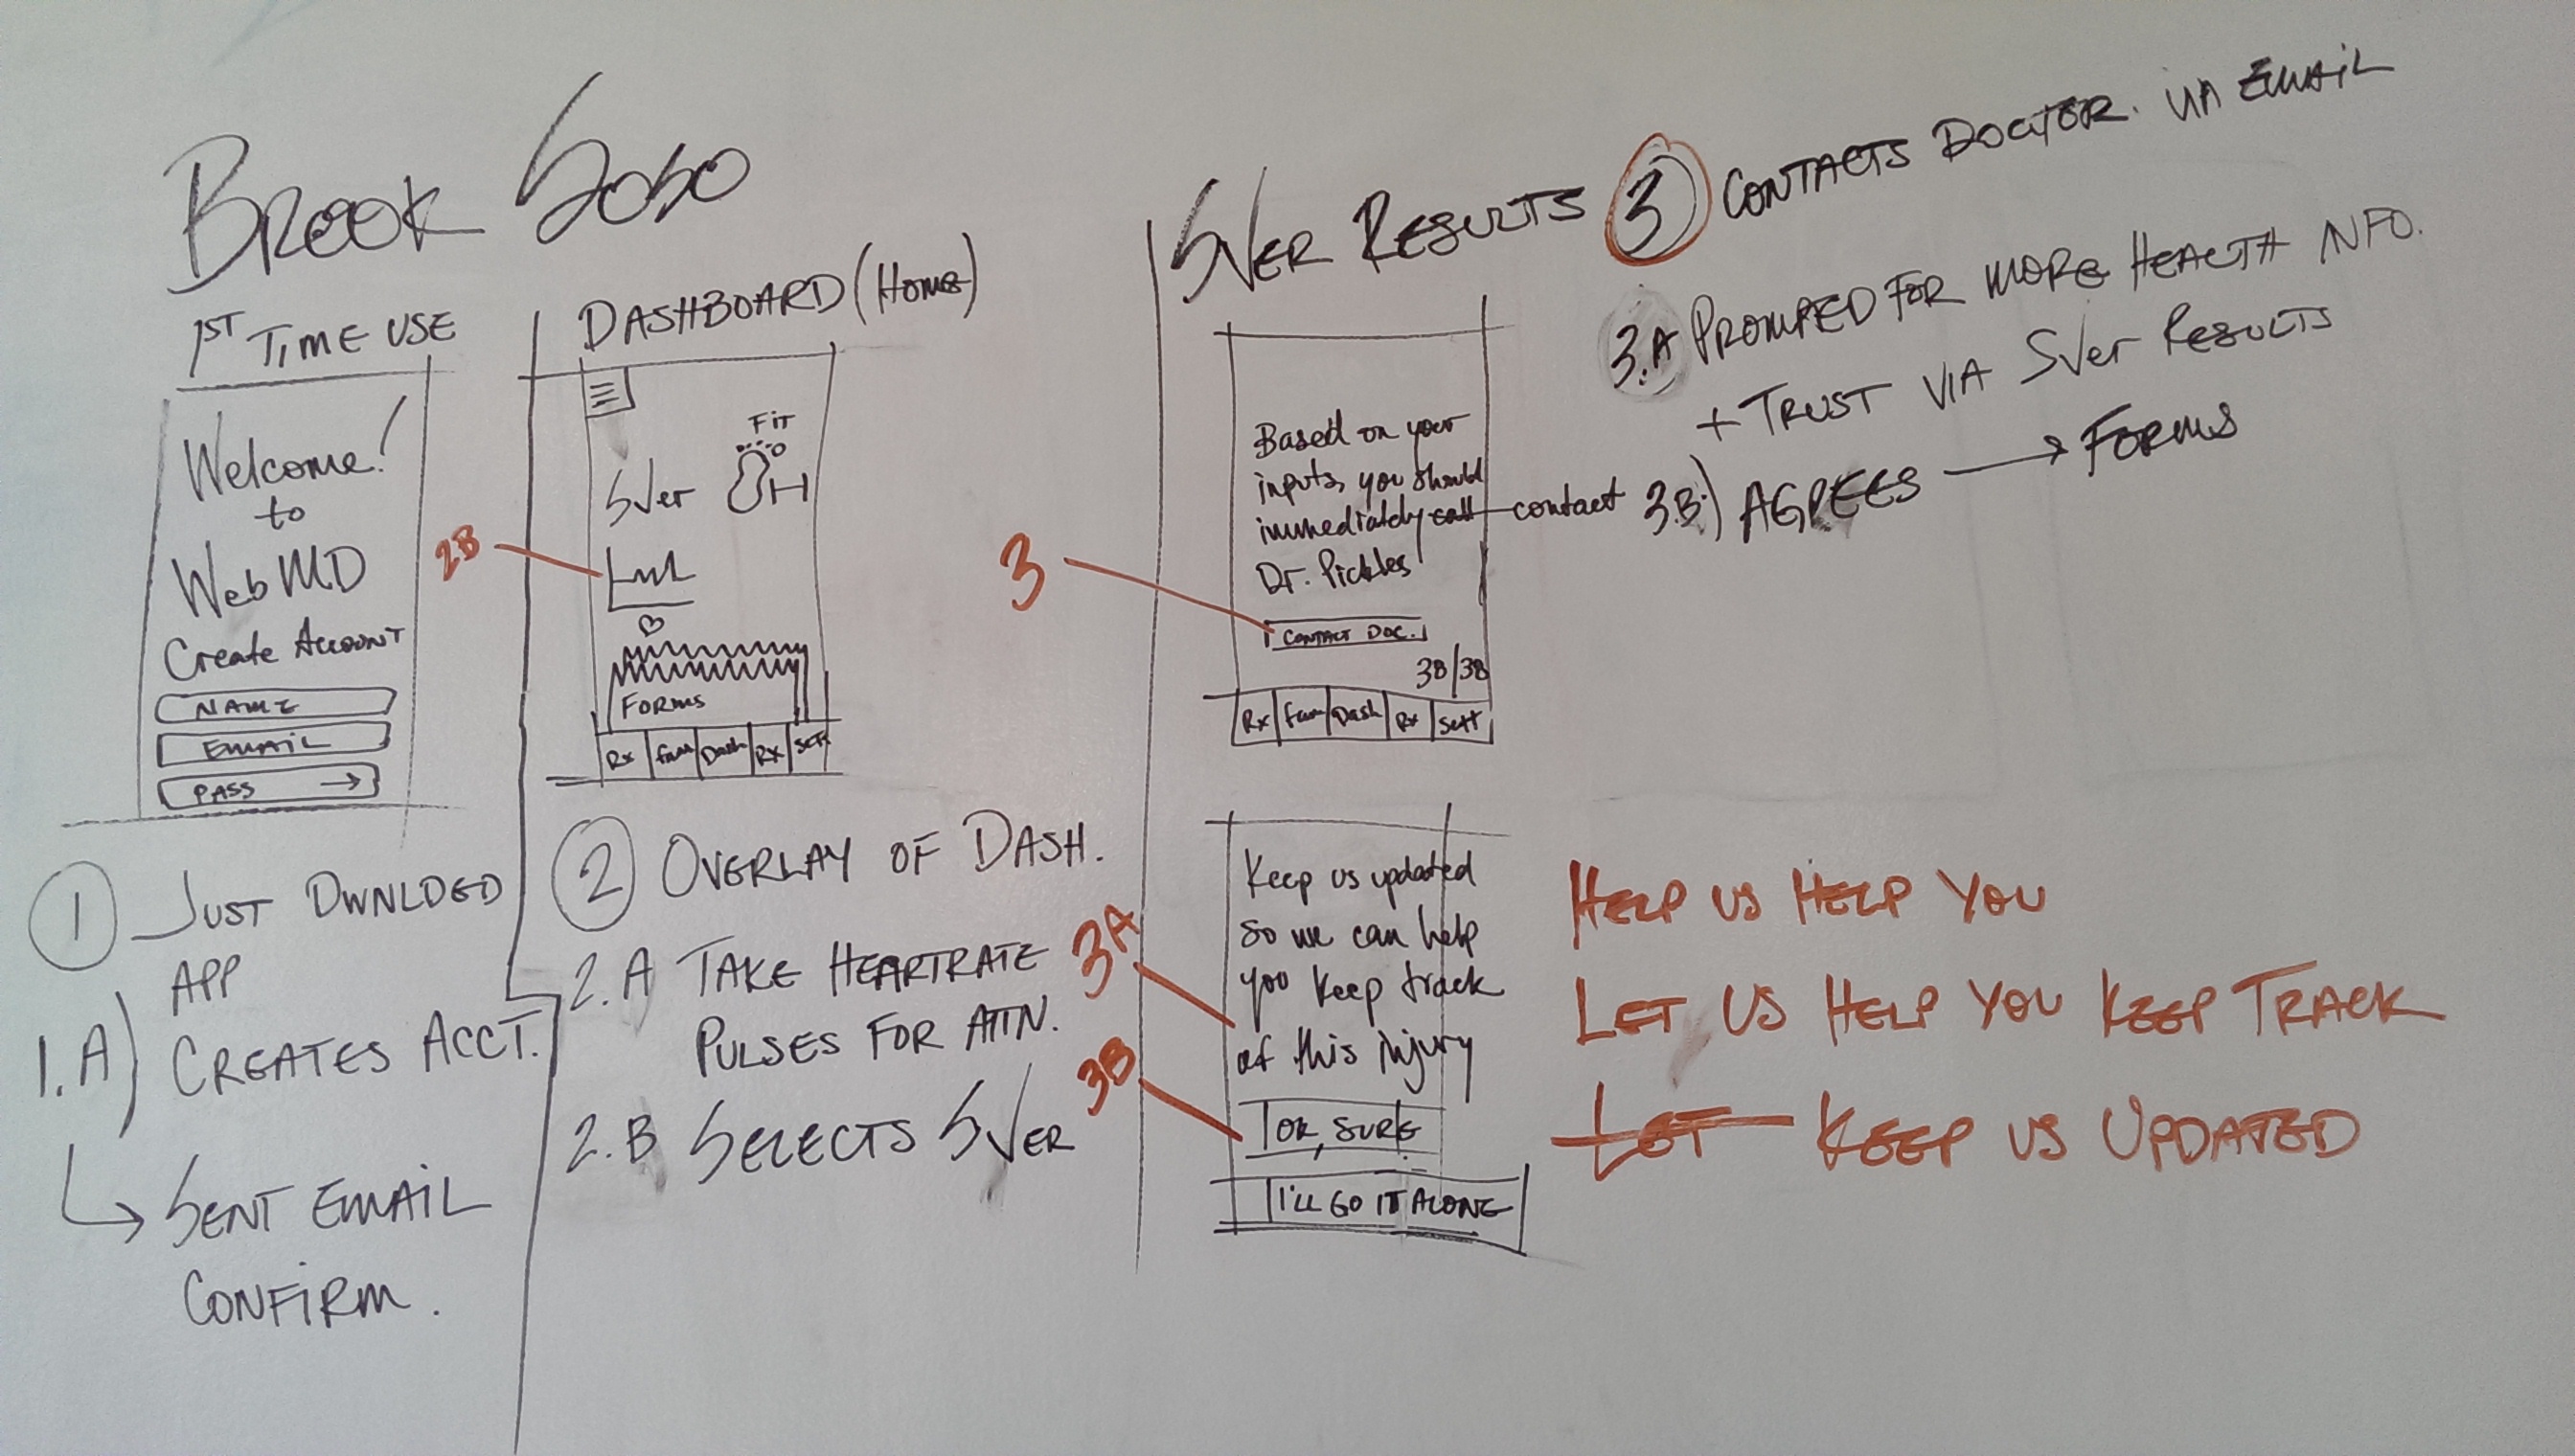 Brook Soso
1ST TIME USE
Welcome!
to
WebMD
Create Account
NAME
EMAIL
PASS →
1 JUST DWNLDED
APP
1.A) CREATES ACCT.
↳ SENT EMAIL
CONFIRM.
DASHBOARD (HOME)
FIT
SVer
2B
FORMS
Rx fam Dash Rx Sett
2 OVERLAY OF DASH.
2.A TAKE HEARTRATE
PULSES FOR ATTN.
2.B SELECTS SVER
SVER RESULTS
Based on your
inputs, you should
immediately call contact
Dr. Pickles
3
CONTACT DOC.
3B/3B
Rx fam Dash Rx Sett
Keep us updated
so we can help
you keep track
of this injury
3A
3B
OK, SURE.
I'LL GO IT ALONE
3 CONTACTS DOCTOR. VIA EMAIL
3.A PROMPED FOR MORE HEALTH INFO.
+ TRUST VIA SVer RESULTS
3.B.) AGREES → FORMS
HELP US HELP YOU
LET US HELP YOU KEEP TRACK
LET KEEP US UPDATED